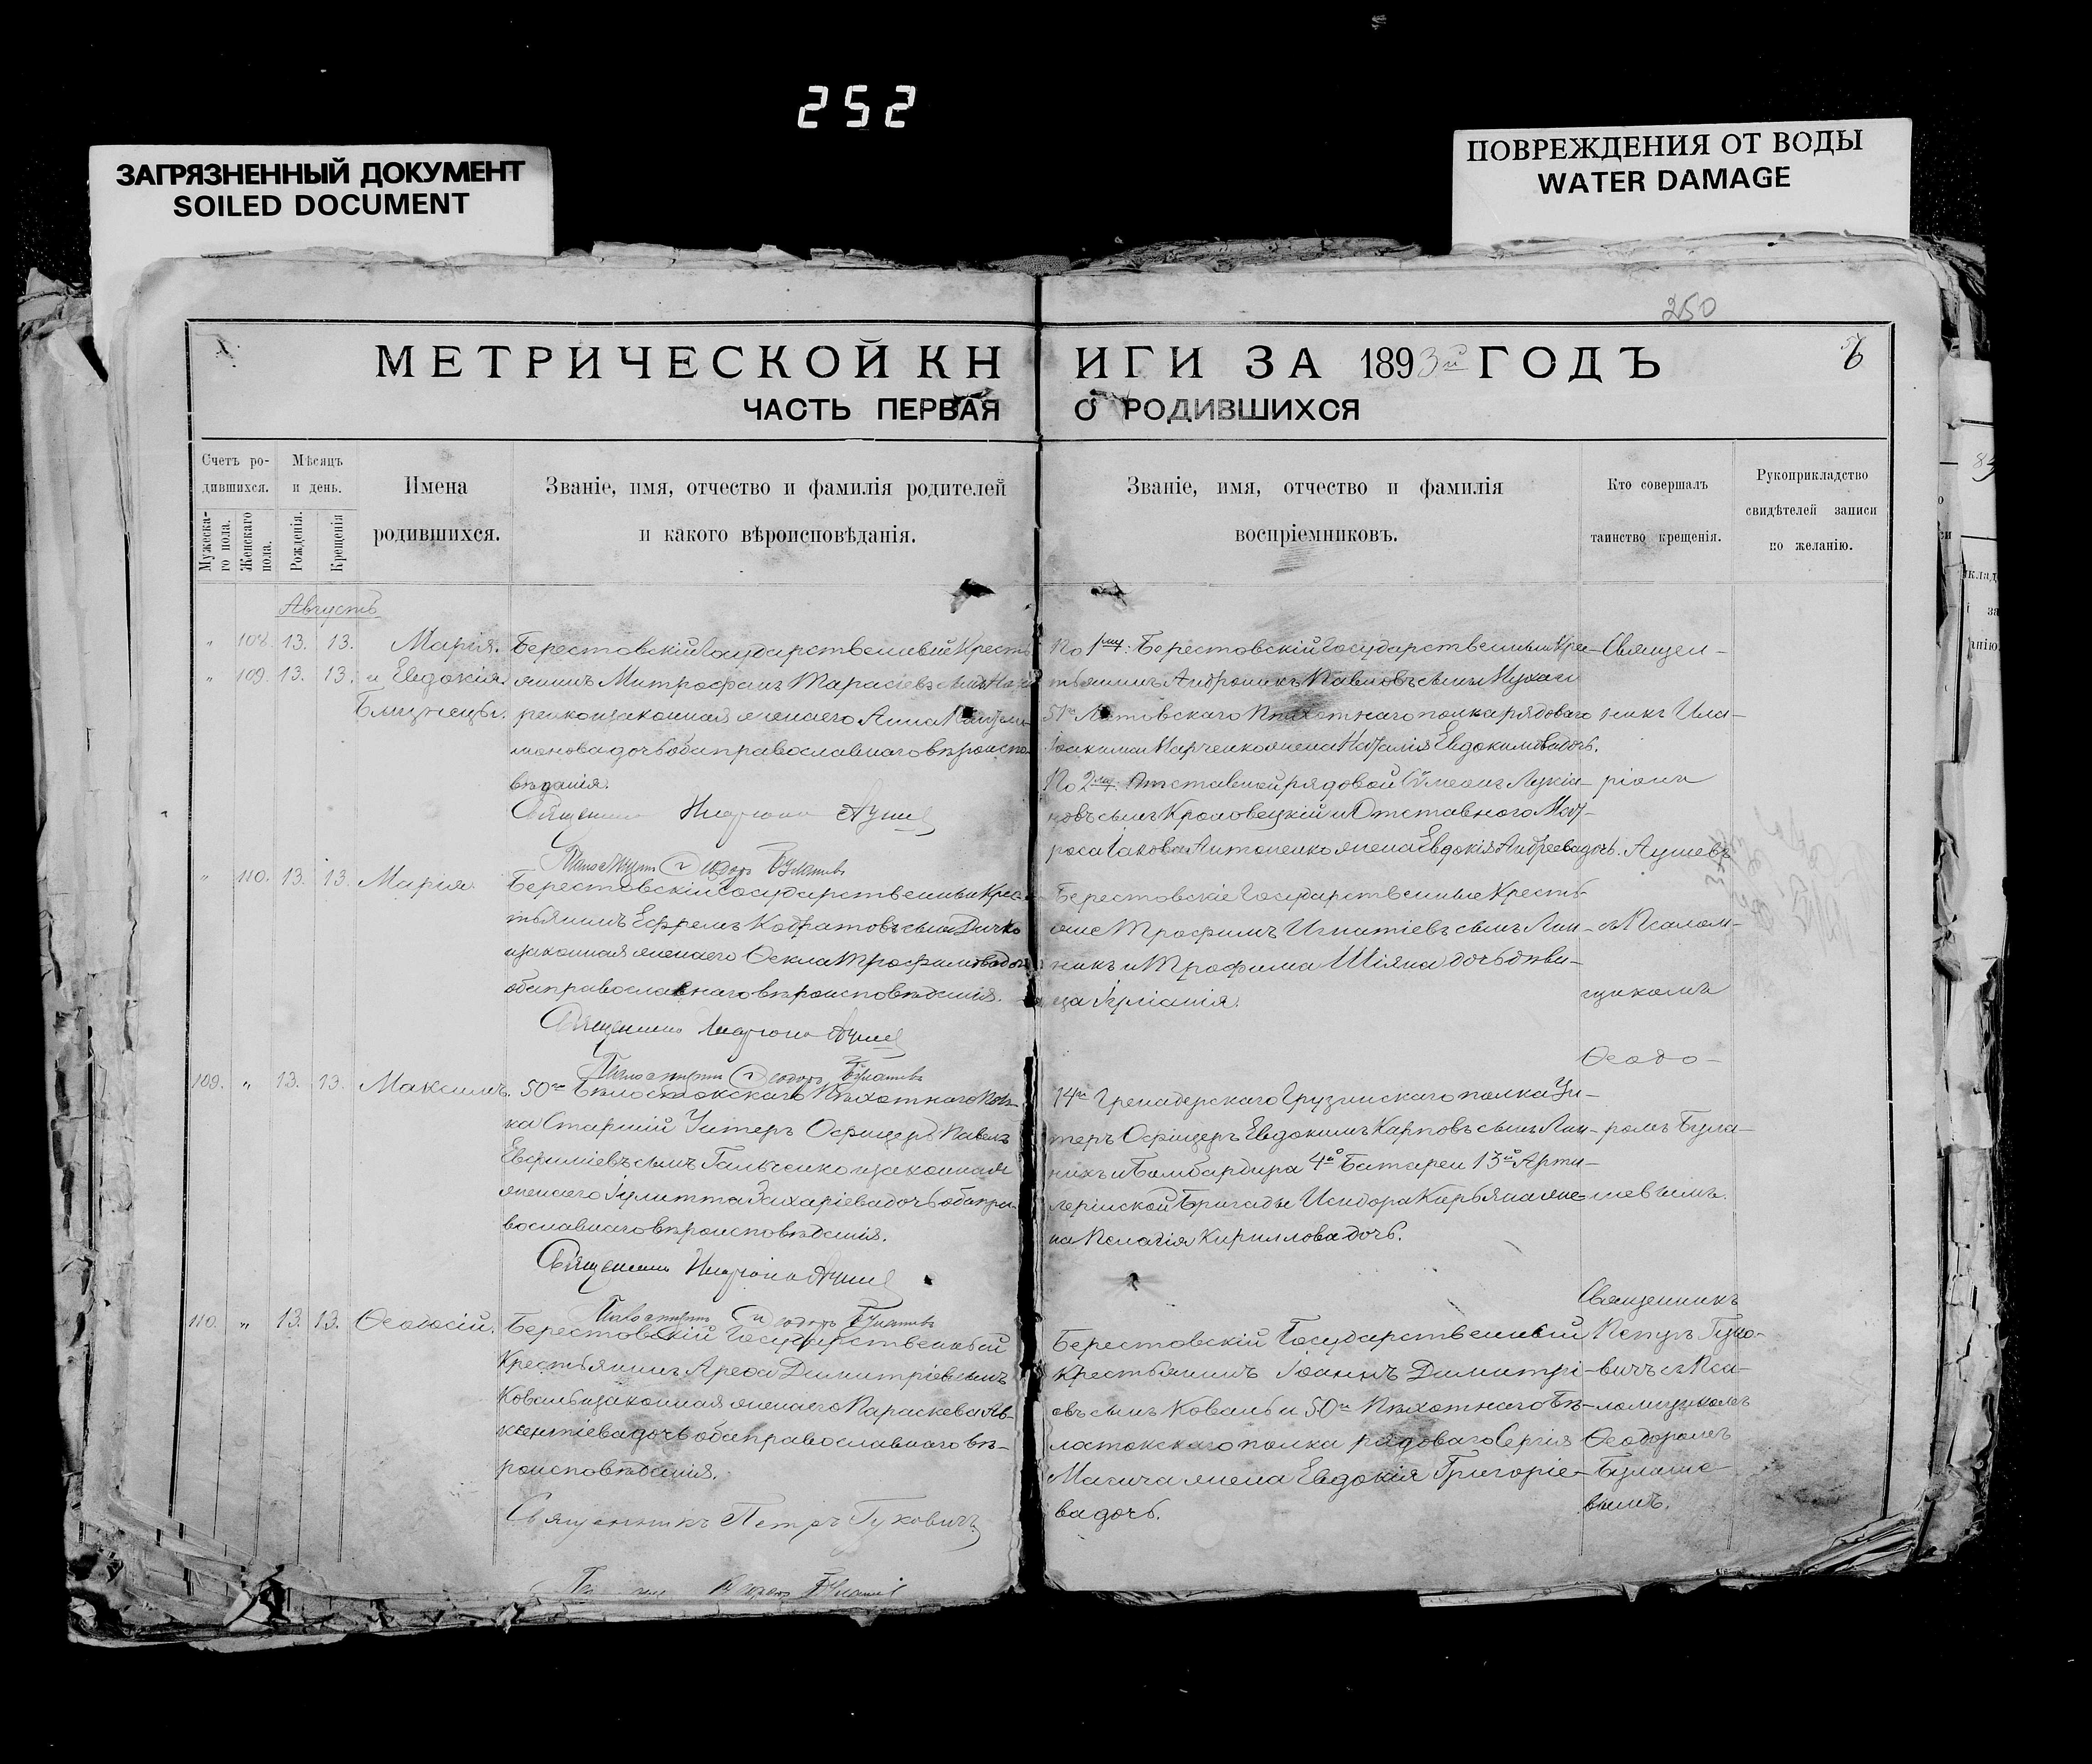 252
ЗАГРЯЗНЕННЫЙ ДОКУМЕНТ
SOILED DOCUMENT
ПОВРЕЖДЕНИЯ ОТ ВОДЫ
WATER DAMAGE
250
МЕТРИЧЕСКОЙ КНИГИ ЗА 1893й ГОДЪ
ЧАСТЬ ПЕРВАЯ О РОДИВШИХСЯ
Счетъ ро-
дившихся.
Мужеска-
го пола.
Женскаго
пола.
Мѣсяцъ
и день.
Рожденія.
Крещенія
Имена
родившихся.
Званіе, имя, отчество и фамилія родителей
и какого вѣроисповѣданія.
Званіе, имя, отчество и фамилія
воспріемниковъ.
Кто совершалъ
таинство крещенія.
Рукоприкладство
свидѣтелей записи
по желанію.
Августъ
" 108. 13. 13. Марія.
" 109. 13. 13. и Евдокія
Близнецы.
Берестовскій Государственный Кресть
янинъ Митрофанъ Тарасіевъ сынъ
законная жена его Анна
дочь оба православнаго вѣроиспо-
вѣданія.
Священникъ Иларіонъ Аушев
Псаломщикъ Ѳеодоръ Булашевъ
По 1мъ: Берестовскій Государственный Кре-
стьянинъ Андроникъ Павловъ сынъ
51го Литовскаго Пѣхотнаго полка рядоваго
Іоакима Марченко жена Наталія Евдокимова дочь.
По 2мъ: Отставной рядовой Симеонъ Лукіа-
новъ сынъ Кроловецкій и Отставного Мат-
роса Іакова Антоненко жена Евдокія Андреева дочь.
Священ-
никъ Ила-
ріонъ
Аушевъ
" 110. 13. 13. Марія.
Берестовскій Государственный Крес-
тьянинъ Ефремъ Кодратовъ сынъ Дичко
и законная жена его Ѳекла Трофимова дочь
оба православнаго вѣроисповѣданія.
Священникъ Иларіонъ Аушев
Псаломщикъ Ѳеодоръ Булашевъ
Берестовскіе Государственные Кресть-
яне Трофимъ Игнатіевъ сынъ Лин-
никъ и Трофима Шіяна дочь дѣви-
ца Іуліанія.
съ Псалом-
щикомъ
Ѳеодо-
109. " 13. 13. Максимъ.
50го Бѣлостокскаго Пѣхотнаго Пол-
ка Старшій Унтеръ Офицеръ Павелъ
Евфиміевъ сынъ Гальченко и законная
жена его Іулитта Захаріева дочь оба пра-
вославнаго вѣроисповѣданія.
Священникъ Иларіонъ Аушев
Псаломщикъ Ѳеодоръ Булашевъ
14го Гренадерскаго Грузинскаго полка Ун-
теръ Офицеръ Евдокимъ Карповъ сынъ Лин-
никъ и Бомбардира 4й Батареи 13й Арти-
лерійской Бригады Исидора Кирьяна же-
на Пелагія Кириллова дочь.
ромъ Була-
шевымъ.
110. " 13. 13. Ѳеодосій.
Берестовскій Государственный
Крестьянинъ Ареѳа Димитріевъ сынъ
Коваль и законная жена его Параскева Ав-
ксентіева дочь оба православнаго вѣ-
роисповѣданія.
Священникъ Петръ Гуковичъ
Берестовскій Государственный
Крестьянинъ Іоаннъ Димитрі-
евъ сынъ Коваль и 50го Пѣхотнаго Бѣ-
лостокскаго полка рядоваго Сергія
жена Евдокія Григоріе-
ва дочь.
Священникъ
Петръ Гуко-
вичъ съ Пса-
ломщикомъ
Ѳеодоромъ
Булаше-
вымъ.